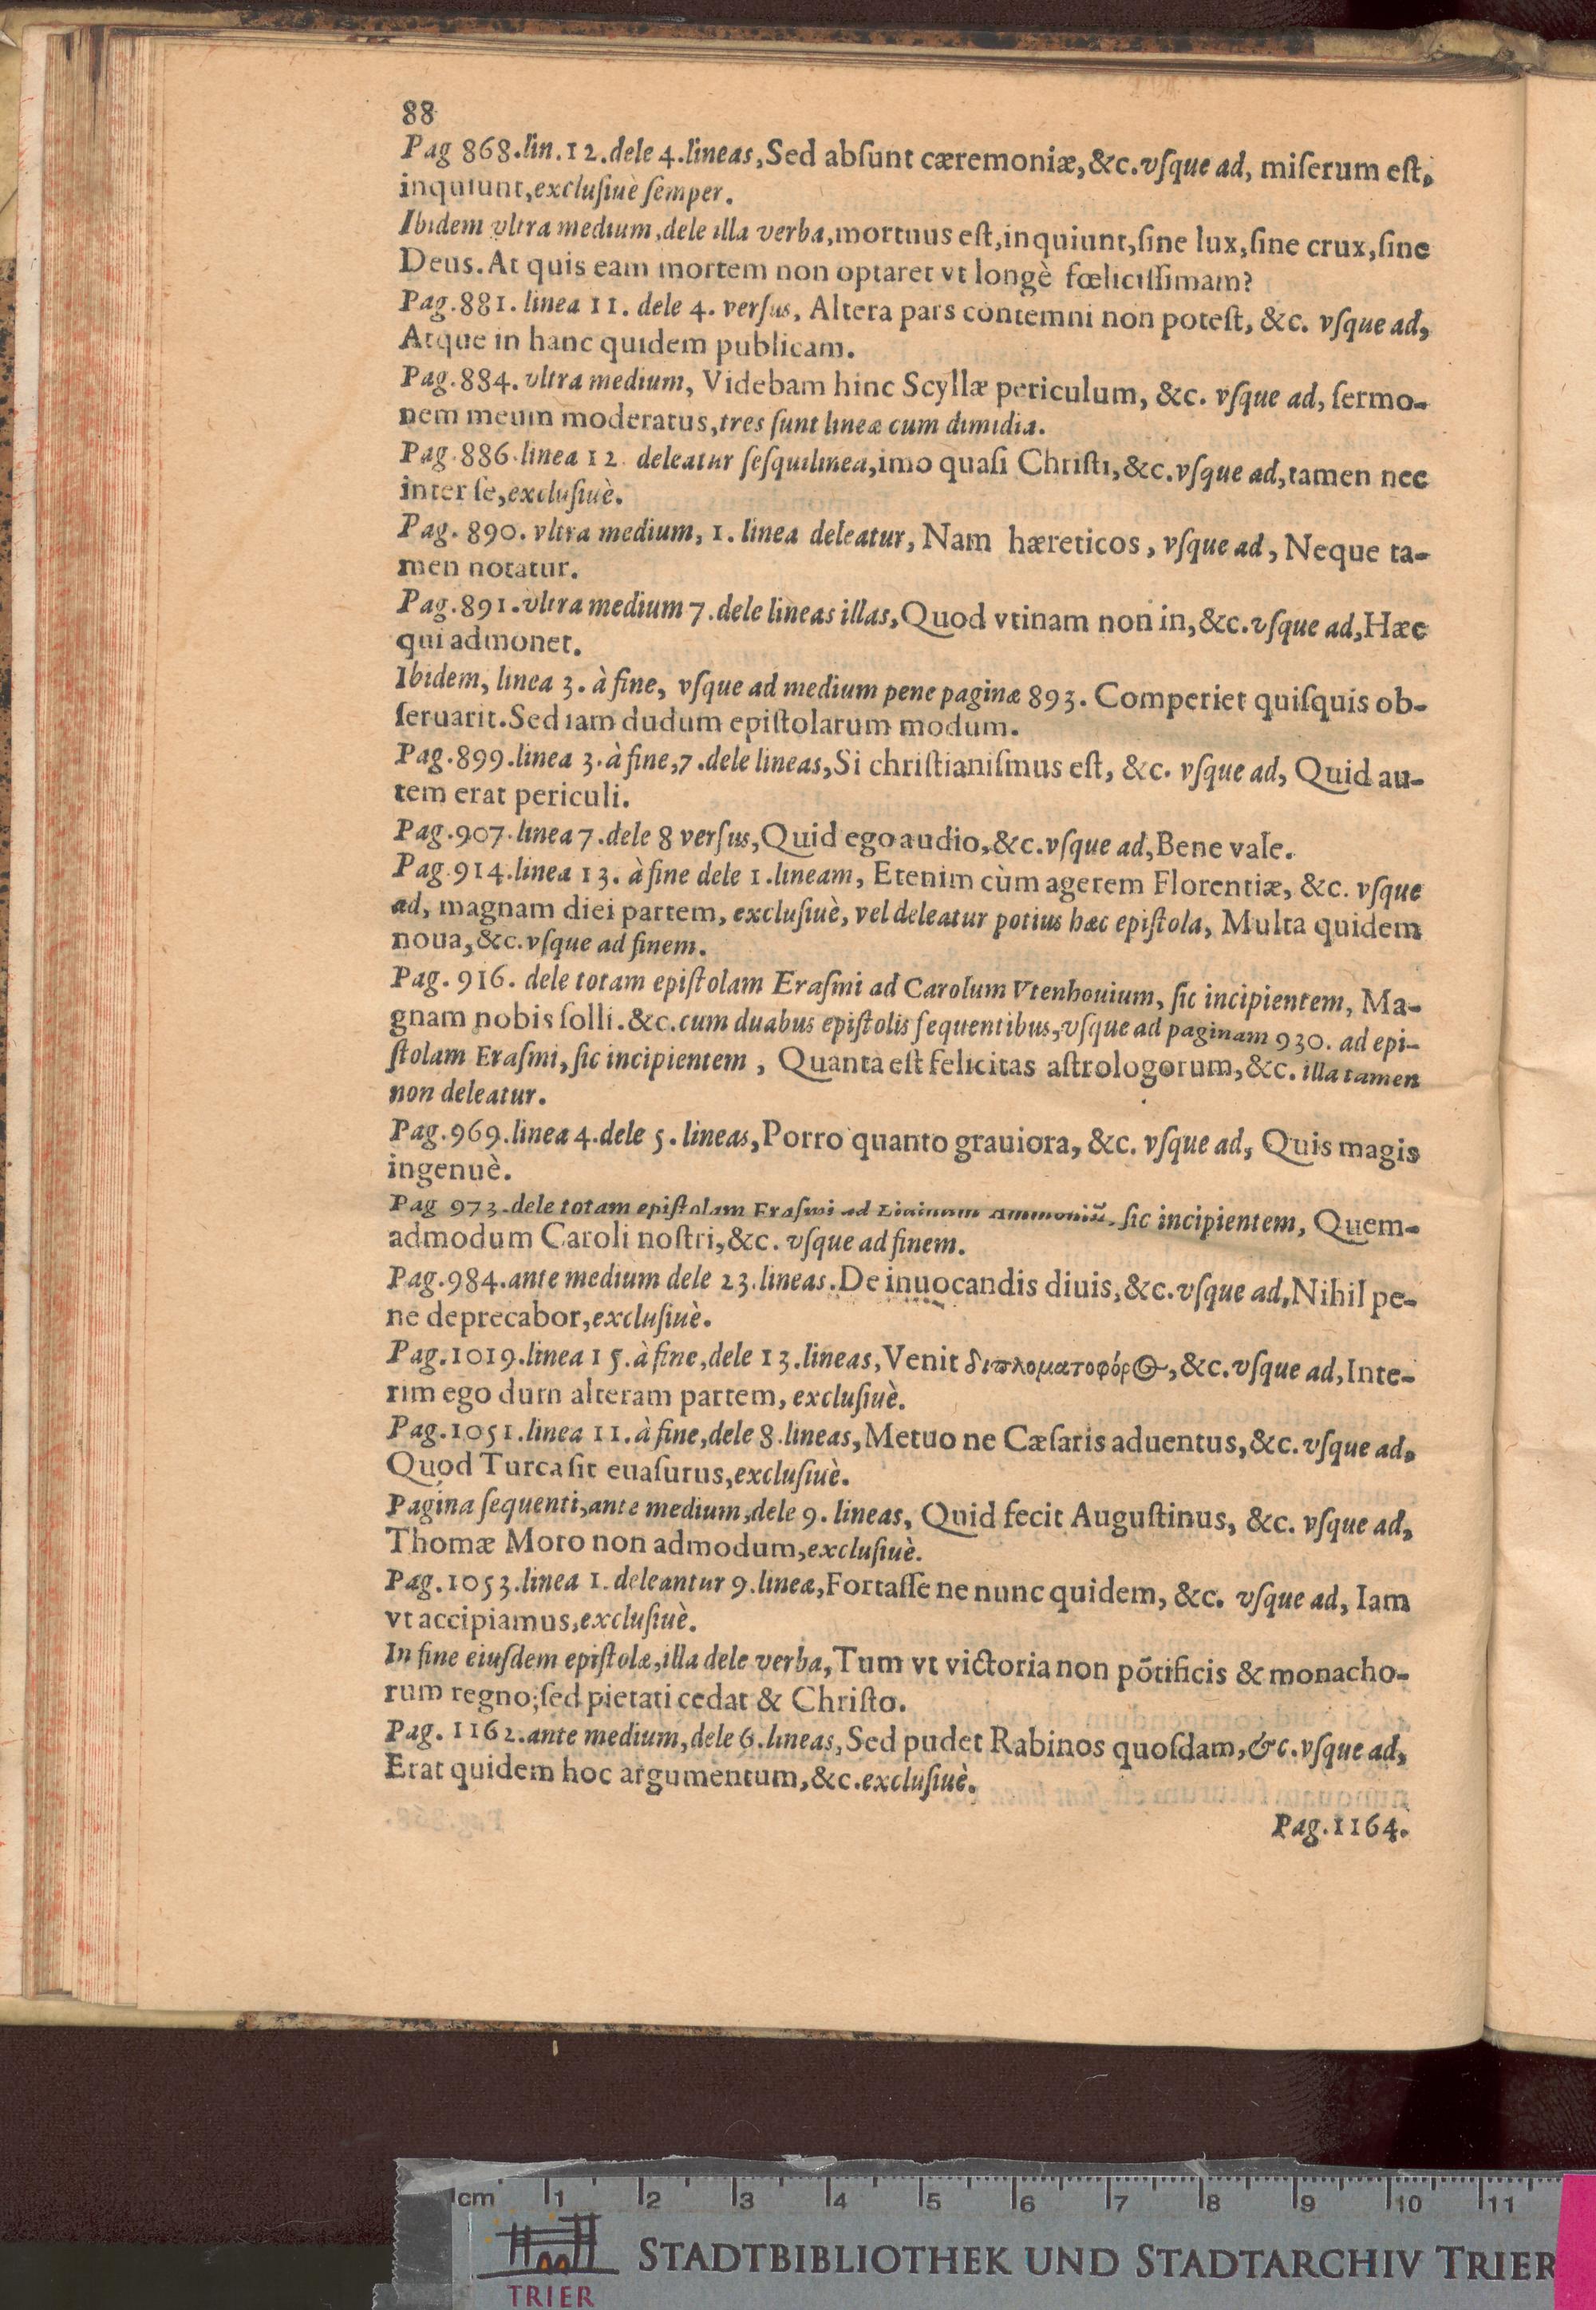 88
Pag 868.lin.12.dele 4.lineas,Sed abſunt cæremoniæ,&c.vſque ad, miſerum eſt,
inquiunt,excluſiuè ſemper.
Ibidem vltra medium,dele illa verba,mortuus eſt,inquiunt,ſine lux,ſine crux,ſine
Deus.At quis eam mortem non optaret vt longè fœliciſſimam?
Pag.881. linea 11. dele 4. verſus, Altera pars contemni non poteſt, &c. vſque ad,
Atque in hanc quidem publicam.
Pag.884. vltra medium, Videbam hinc Scyllæ periculum, &c. vſque ad, ſermo-
nem meum moderatus,tres ſunt lineæ cum dimidia.
Pag.886.linea 12 deleatur ſeſquilinea,imo quaſi Chriſti,&c.vſque ad,tamen nec
inter ſe,excluſiuè.
Pag. 890. vltra medium, 1. linea deleatur, Nam hæreticos, vſque ad, Neque ta-
men notatur.
Pag.891.vltra medium 7.dele lineas illas,Quod vtinam non in,&c.vſque ad,Hæc
qui admonet.
Ibidem, linea 3. à fine, vſque ad medium pene paginæ 893. Comperiet quiſquis ob-
ſeruarit.Sed iam dudum epiſtolarum modum.
Pag.899.linea 3.à fine,7.dele lineas,Si chriſtianiſmus eſt, &c. vſque ad, Quid au-
tem erat periculi.
Pag.907.linea 7.dele 8 verſus,Quid ego audio,&c.vſque ad,Bene vale.
Pag.914.linea 13. à fine dele 1.lineam, Etenim cùm agerem Florentiæ, &c. vſque
ad, magnam diei partem, excluſiuè, vel deleatur potius hæc epiſtola, Multa quidem
noua,&c.vſque ad finem.
Pag. 916. dele totam epiſtolam Eraſmi ad Carolum Vtenhouium, ſic incipientem, Ma-
gnam nobis ſolli.&c.cum duabus epiſtolis ſequentibus,vſque ad paginam 930. ad epi-
ſtolam Eraſmi, ſic incipientem, Quanta eſt felicitas aſtrologorum,&c. illa tamen
non deleatur.
Pag.969.linea 4.dele 5. lineas,Porro quanto grauiora, &c. vſque ad, Quis magis
ingenuè.
Pag 973.dele totam epiſtolam Eraſmi ad ſic incipientem, Quem-
admodum Caroli noſtri,&c. vſque ad finem.
Pag.984.ante medium dele 23.lineas.De inuocandis diuis,&c.vſque ad,Nihil pe-
ne deprecabor,excluſiuè.
Pag.1019.linea 15.à fine,dele 13.lineas,Venit διπλοματοφόρος,&c.vſque ad,Inte-
rim ego dum alteram partem, excluſiuè.
Pag.1051.linea 11.à fine,dele 8.lineas,Metuo ne Cæſaris aduentus,&c.vſque ad,
Quod Turca ſit euaſurus,excluſiuè.
Pagina ſequenti,ante medium,dele 9. lineas, Quid fecit Auguſtinus, &c. vſque ad,
Thomæ Moro non admodum,excluſiuè.
Pag.1053.linea 1.deleantur 9.lineæ,Fortaſſe ne nunc quidem, &c. vſque ad, Iam
vt accipiamus,excluſiuè.
In fine eiuſdem epiſtolæ,illa dele verba,Tum vt victoria non põtificis & monacho-
rum regno;ſed pietati cedat & Chriſto.
Pag. 1162.ante medium,dele 6.lineas,Sed pudet Rabinos quoſdam,&c.vſque ad,
Erat quidem hoc argumentum,&c.excluſiuè.
Pag.1164.
cm 1 2 3 4 5 6 7 8 9 10 11
STADTBIBLIOTHEK UND STADTARCHIV TRIER
TRIER